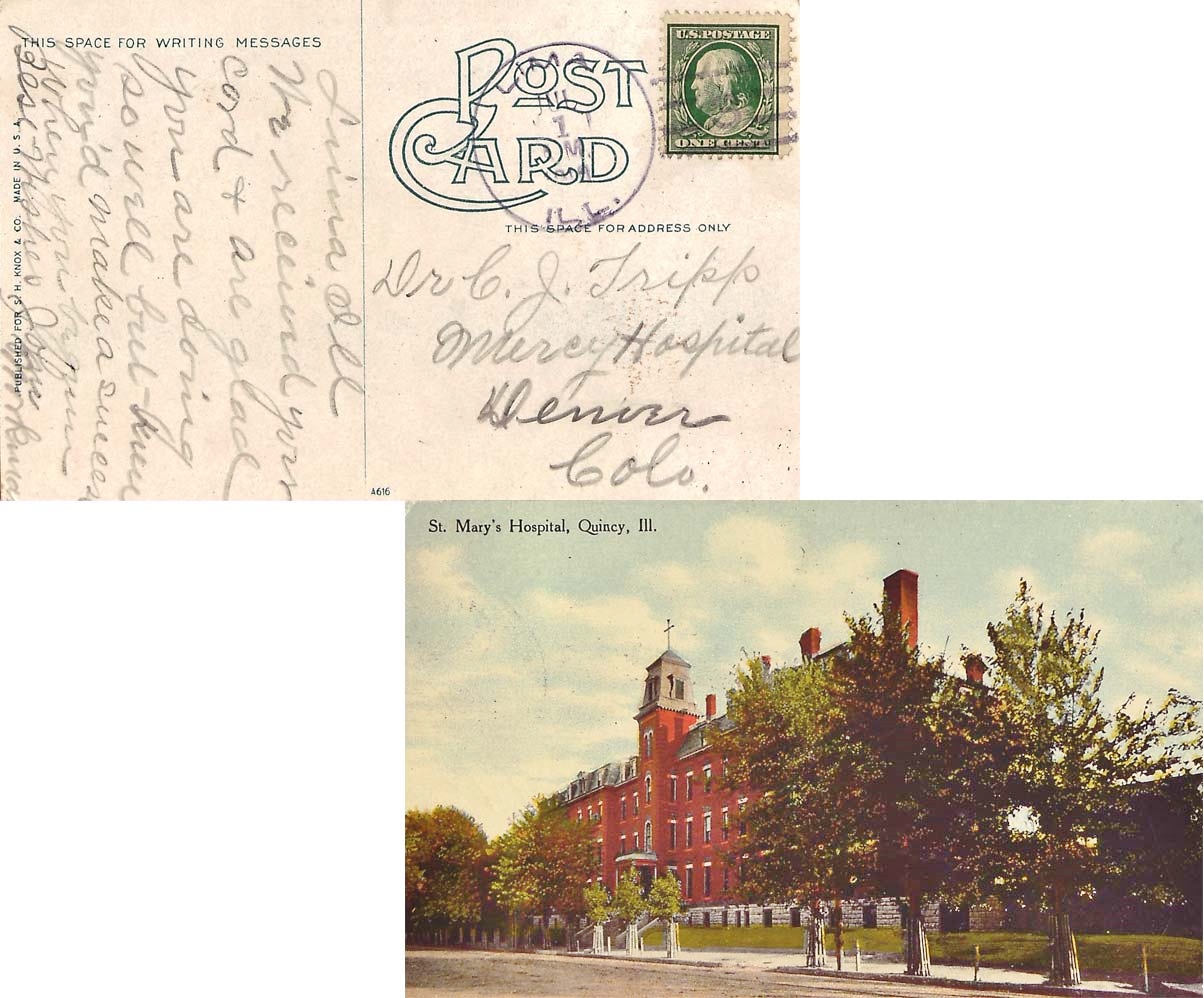 THIS SPACE FOR WRITING MESSAGES
Lima Ill
We received your
card & are glad
you are doing
so well but knew
you'd make a succes
when you begun
best wishes John
PUBLISHED FOR S. H. KNOX & CO. MADE IN U. S. A.
POST
CARD
LIMA
JUL
1
M
ILL.
U.S. POSTAGE
ONE CENT
THIS SPACE FOR ADDRESS ONLY
Dr C. J. Tripp
Mercy Hospital
Denver
Colo.
A616
St. Mary's Hospital, Quincy, Ill.